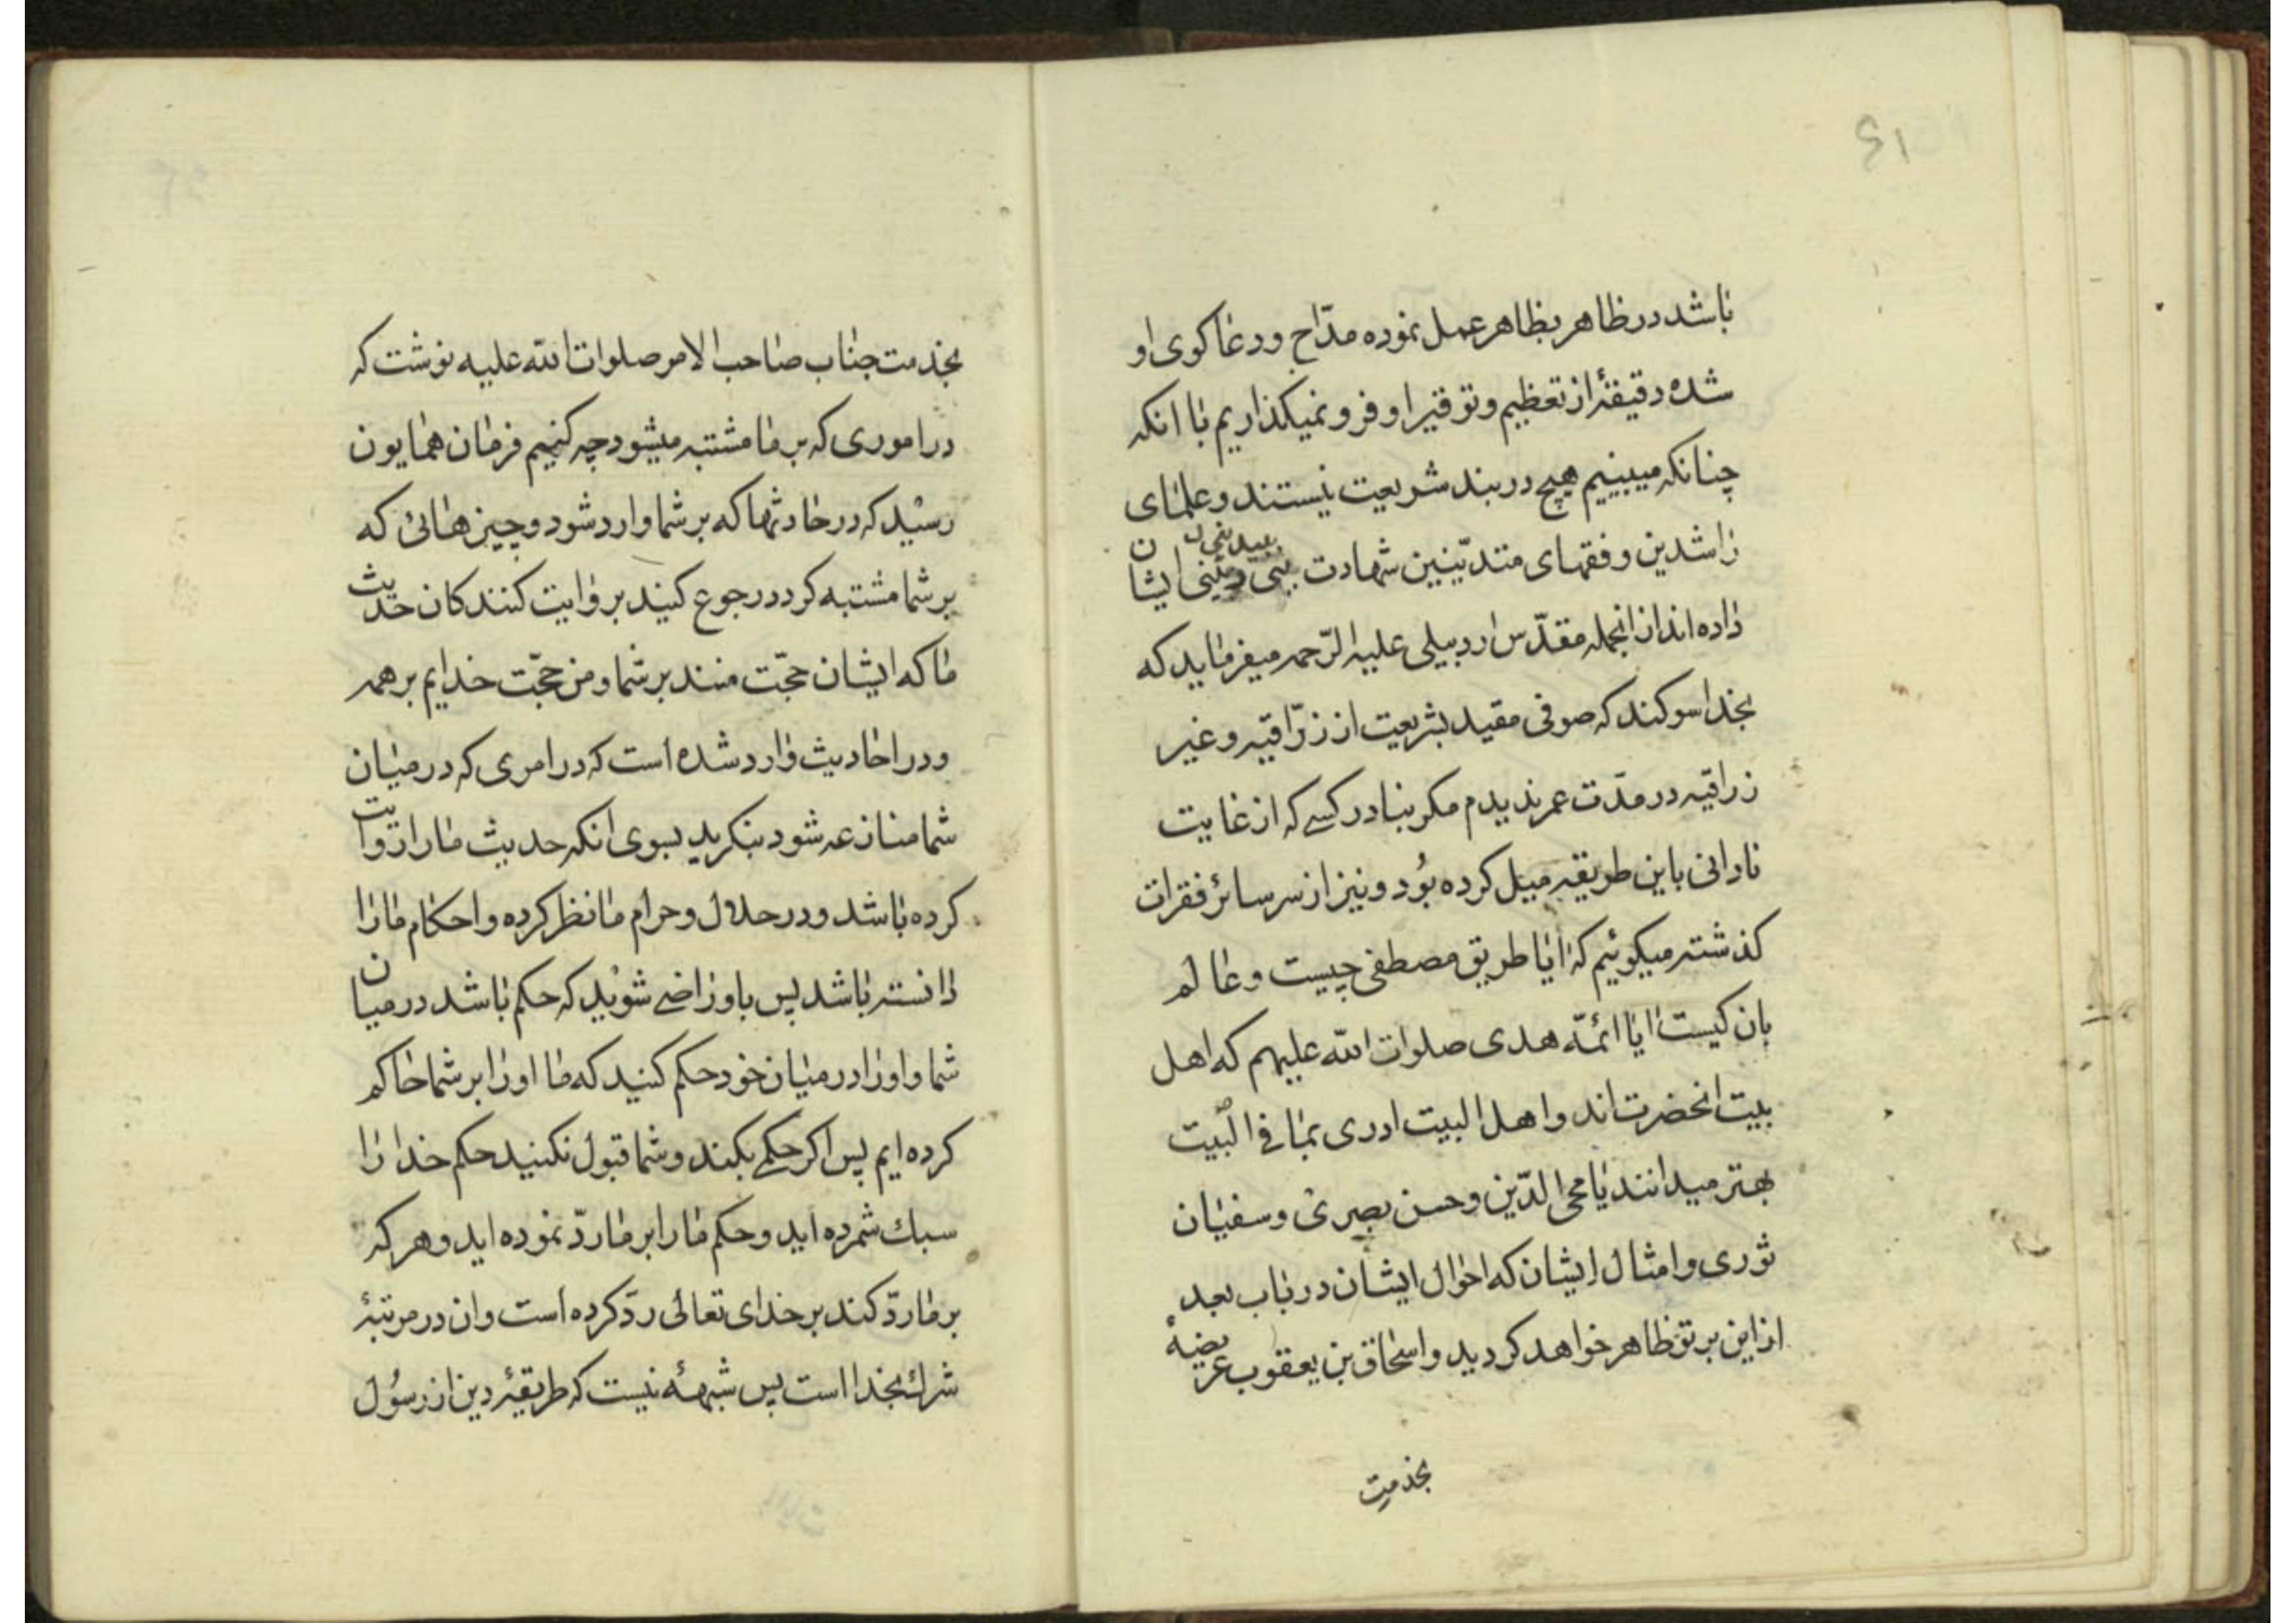 ۶۱
باشد در ظاهر بظاهر عمل نموده مدّاح و دعا کوی او
شده دقیقۀ از تعظیم و توقیر او فرو نمیکذاریم با انکه
چنانکه میبینیم هیچ در بند شریعت نیستند و علمای
راشدین و فقهای متدیّنین شهادت ایشان
داده‌اند از انجمله مقدّس اردبیلی علیه الرّحمه میفرماید که
بخدا سوکند که صوفی مقید بشریعت از زرّاقیّه و غیر
زراقیّه در مدّت عمر ندیدم مکر بنادر کسے که از غایت
نادانی باین طریقه میل کرده بُود و نیز از سر سائر فقرات
کذشته میکوئیم که ایا طریق مصطفی چیست و عالم
بان کیست ایا ائمّه هدی صلوات الله علیهم که اهل
بیت انحضرت‌اند و اهل البیت ادری بما فی البَیت
بهتر میدانند یا محی الدّین و حسن بصری و سفیان
ثوری و امثال ایشان که احوال ایشان در باب بعد
از این بر تو ظاهر خواهد کردید و اسحاق بن یعقوب عریضهٔ
بخدمت
بخدمت جناب صاحب الامر صلوات الله علیه نوشت که
در اموری که بر ما مشتبه میشود چه کنیم فرمان همایون
رسید که در حادثها که بر شما وارد شود و چیزهائی که
بر شما مشتبه کردد رجوع کنید بروایت کنندکان حدیث
ما که ایشان حجّت منند بر شما و من حجّت خدایم بر همه
و در احادیث وارد شده است که در امری که در میان
شما منازعه شود بنکرید بسوی انکه حدیث ما را روایت
کرده باشد و در حلال و حرام ما نظر کرده و احکام ما را
دانسته باشد پس باو راضے شوید که حکم باشد در میان
شما و او را در میان خود حکم کنید که ما او را بر شما حاکم
کرده ایم پس اکر حکمے بکند و شما قبول نکنید حکم خدا را
سبك شمرده اید و حکم ما را بر ما ردّ نموده اید و هر که
بر ما ردّ کند بر خدای تعالی ردّ کرده است و ان در مرتبۀ
شرك بخدا است پس شبههٔ نیست که طریقۀ دین از رسُول